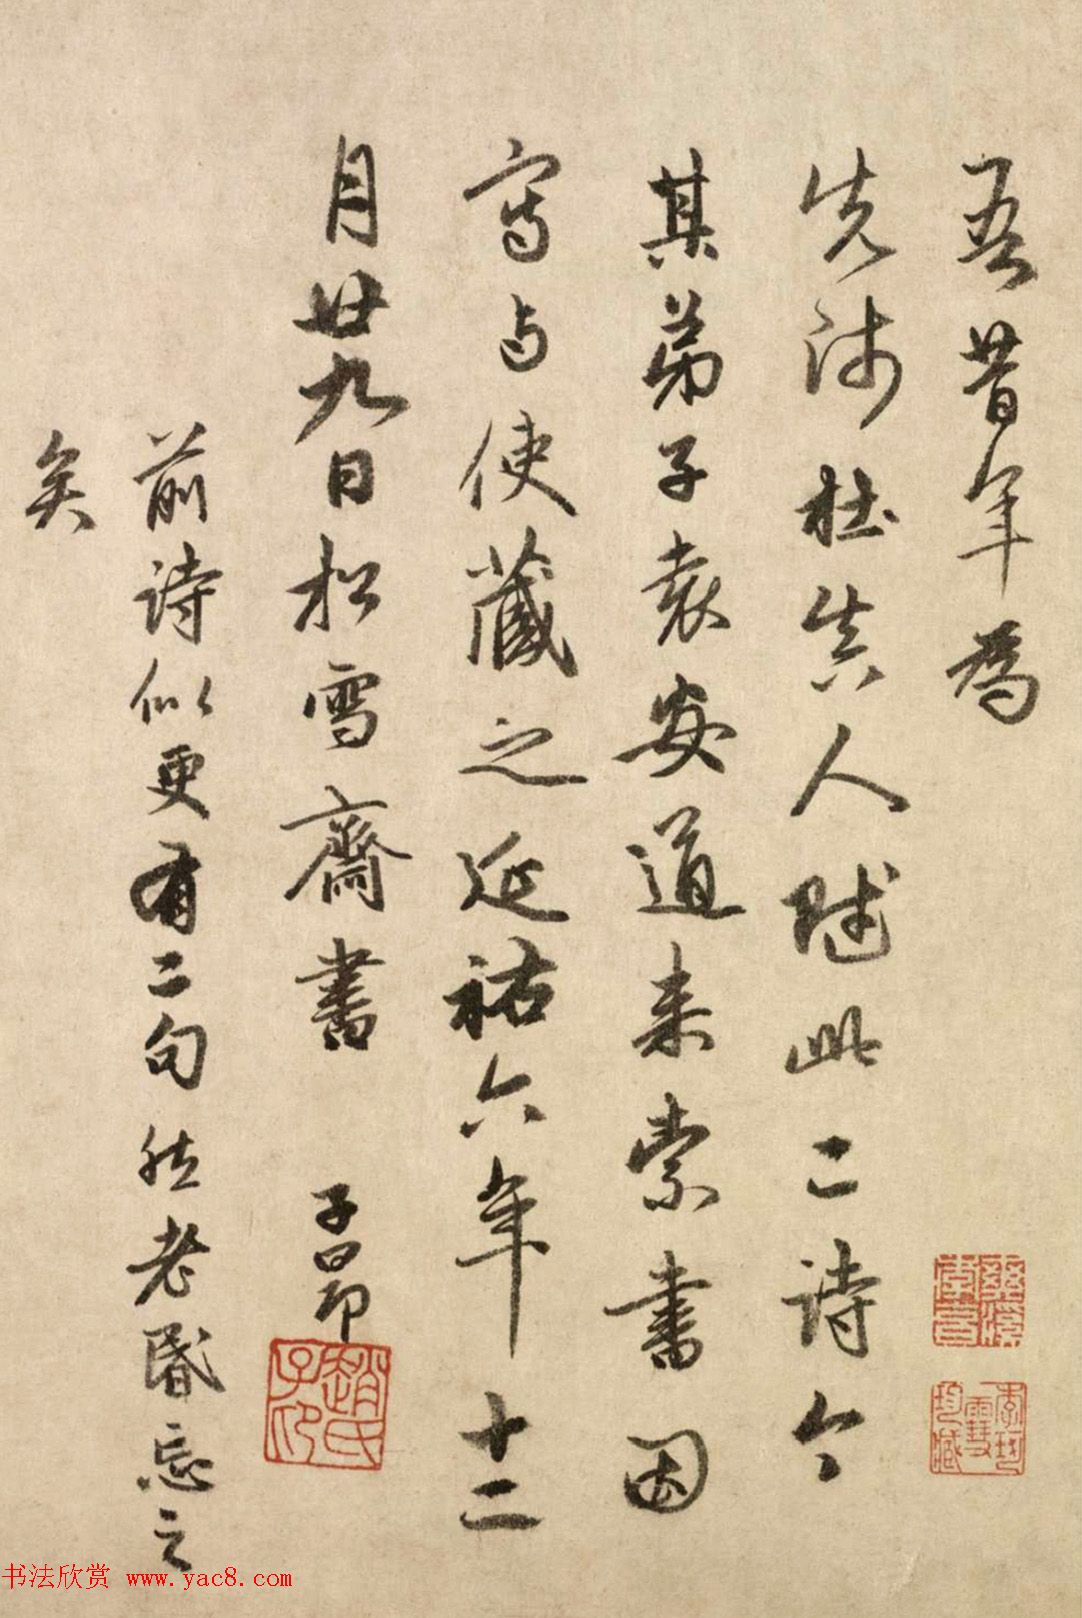 吾昔年為
先師杜真人賦此二詩今
其弟子袁安道来索書因
寫与使藏之延祐六年十二
月廿九日松雪齋書 子昂
趙氏子印
前詩似更有二句然老昏忘之
矣
书法欣赏 www.yac8.com